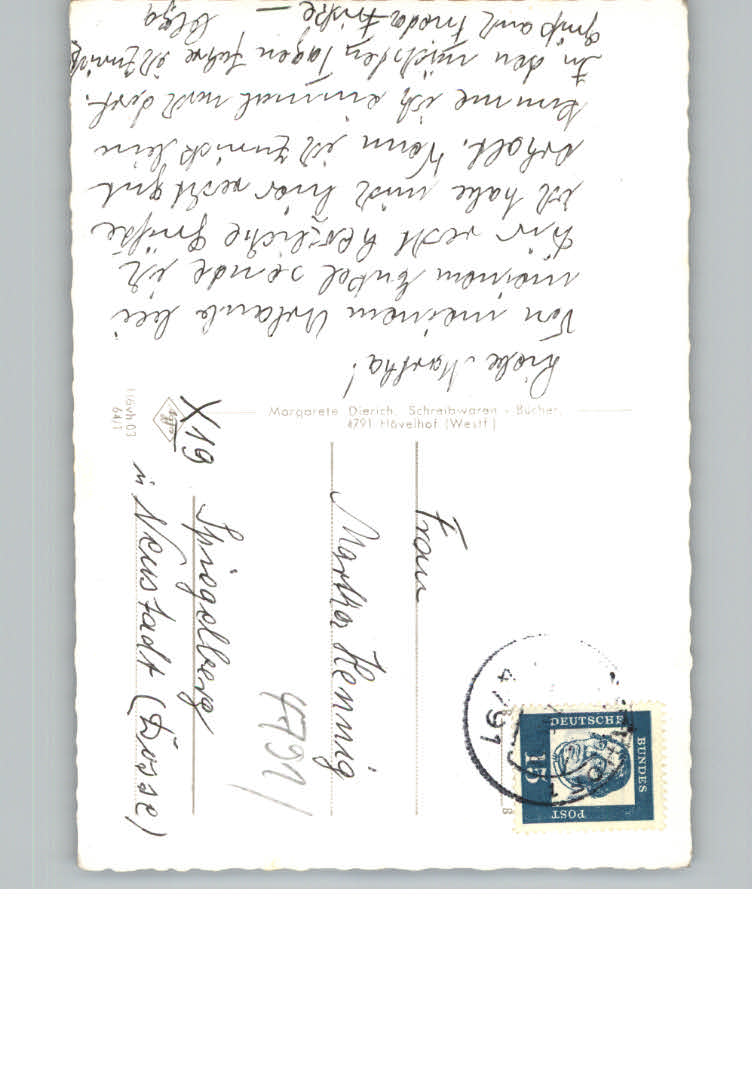 Liebe Martha!
Von meinem Urlaub bei
meinem Enkel sende ich
Dir recht herzliche Grüße
ich habe mich hier recht gut
erholt. Wenn ich zurück bin
komme ich einmal nach dort.
In den nächsten Tagen fahre ich zurück
Gruß auch Frieda
Olga
Margarete Dierich, Schreibwaren - Bücher,
4791 Hövelhof (Westf.)
Hövh 03
64/1
Frau
Martha Hennig
X19 Spiegelberg
in Neustadt (Dosse)
4791
4791
DEUTSCHE
BUNDES
POST
15